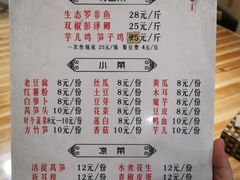 生态罗非鱼 28元/斤
双椒彭泽鲫 25元/斤
芋儿笋子鸡 元/斤
一次性锅底 25元/锅 餐位费 4元/位
小菜
老豆腐 8元/份 丝瓜 8元/份 黄瓜 8元/份
红薯粉 8元/份 土豆 8元/份 木耳 8元/份
白萝卜 8元/份 豆芽 8元/份 魔芋 8元/份
莴笋 8元/份 花菜 8元/份 豆皮 8元/份
时令蔬菜 8元-10元/份 莲白 8元/份 鸭血 8元/份
方竹笋 10元/份 香菇 10元/份 芋儿 10元/份
凉菜
活捉莴笋 12元/份 水煮花生 12元/份
折耳根 12元/份 青椒皮蛋 12元/份